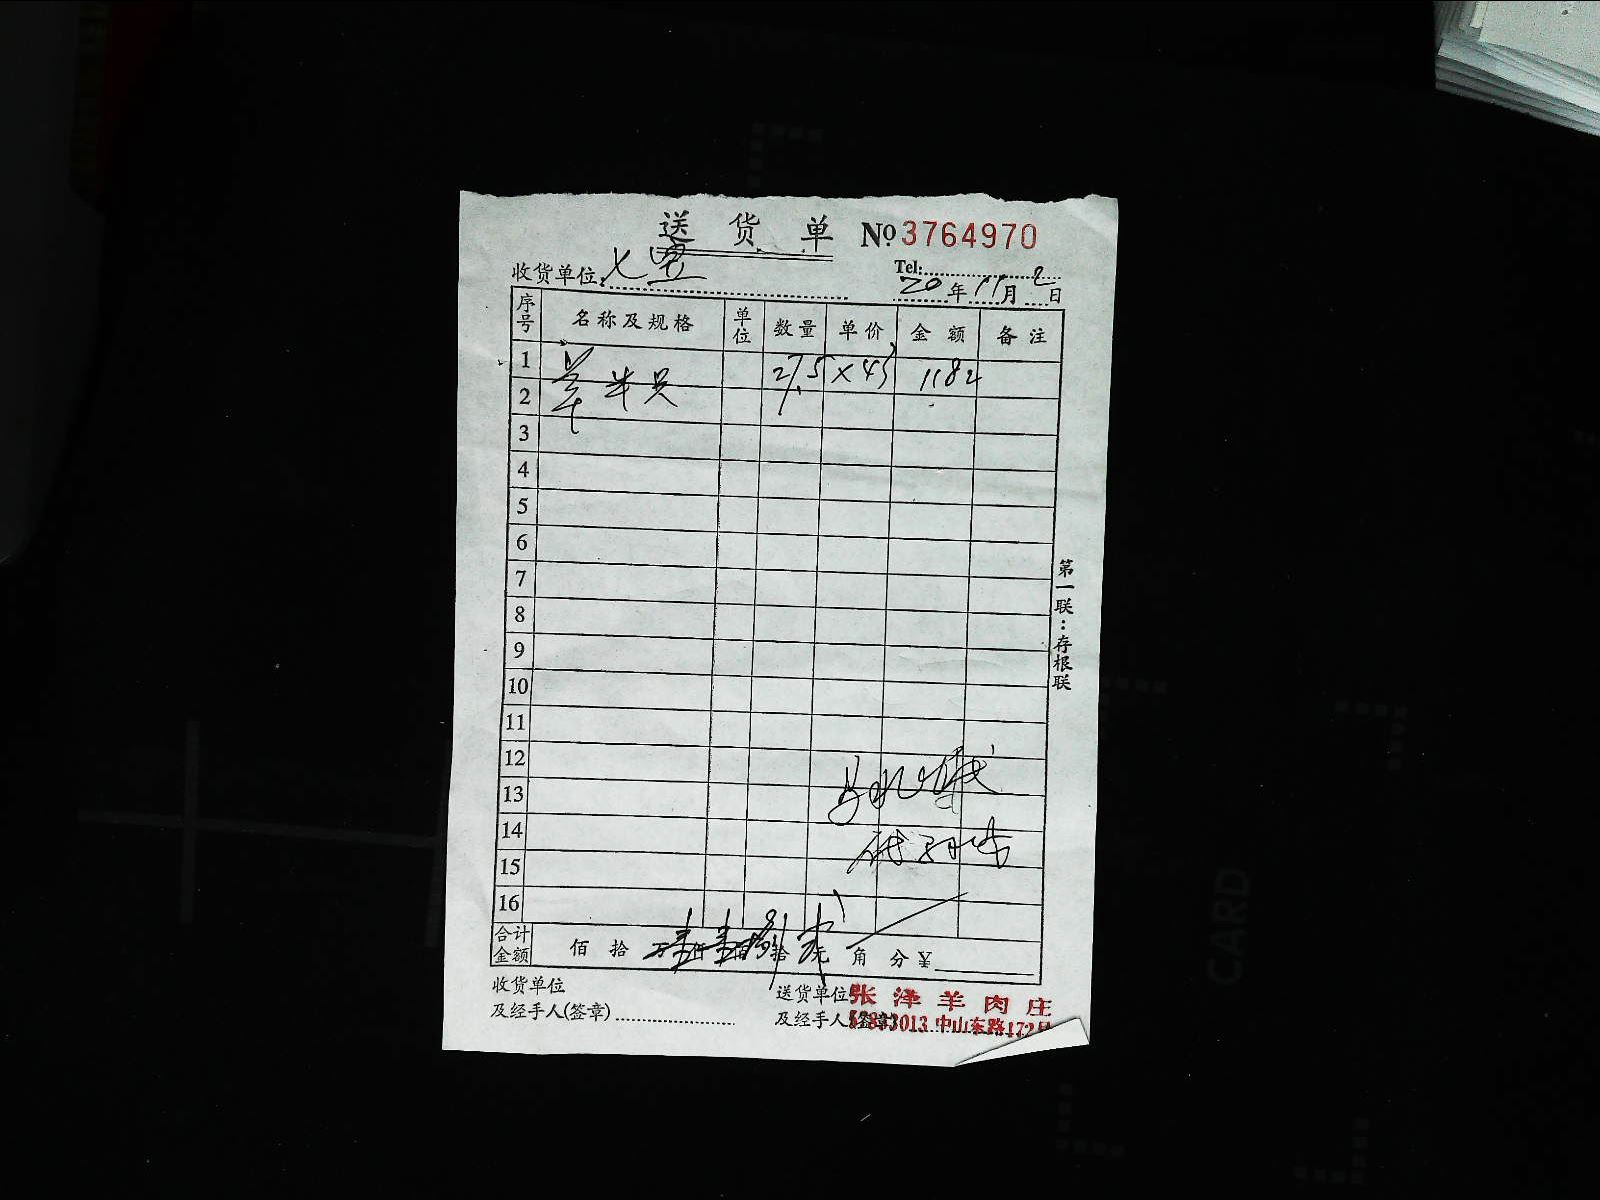 送货单 №3764970
收货单位: 七里
Tel:
20年11月2日
序号 名称及规格 单位 数量 单价 金额 备注
1 羊半只 27.5 ×43 1182
2
3
4
5
6
7
8
9
10
11
12
13
14
15
16
合计金额 佰 拾 万壹仟壹佰捌拾贰元 角 分 ¥
收货单位 送货单位 张泽羊肉庄
及经手人(签章) 及经手人(签章) 57833013 中山东路172号
第一联：存根联
CARD